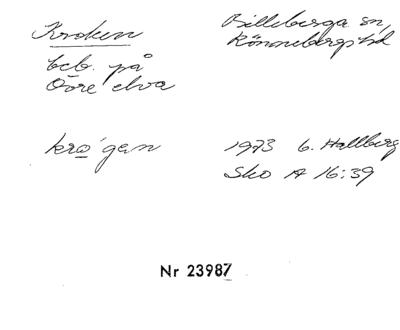 Kroken
Billeberga sn,
Rönnebergs hd
beb. på
Övre elva
kro´gan
1973 G. Hallberg
Sko A 16:39
Nr 23987